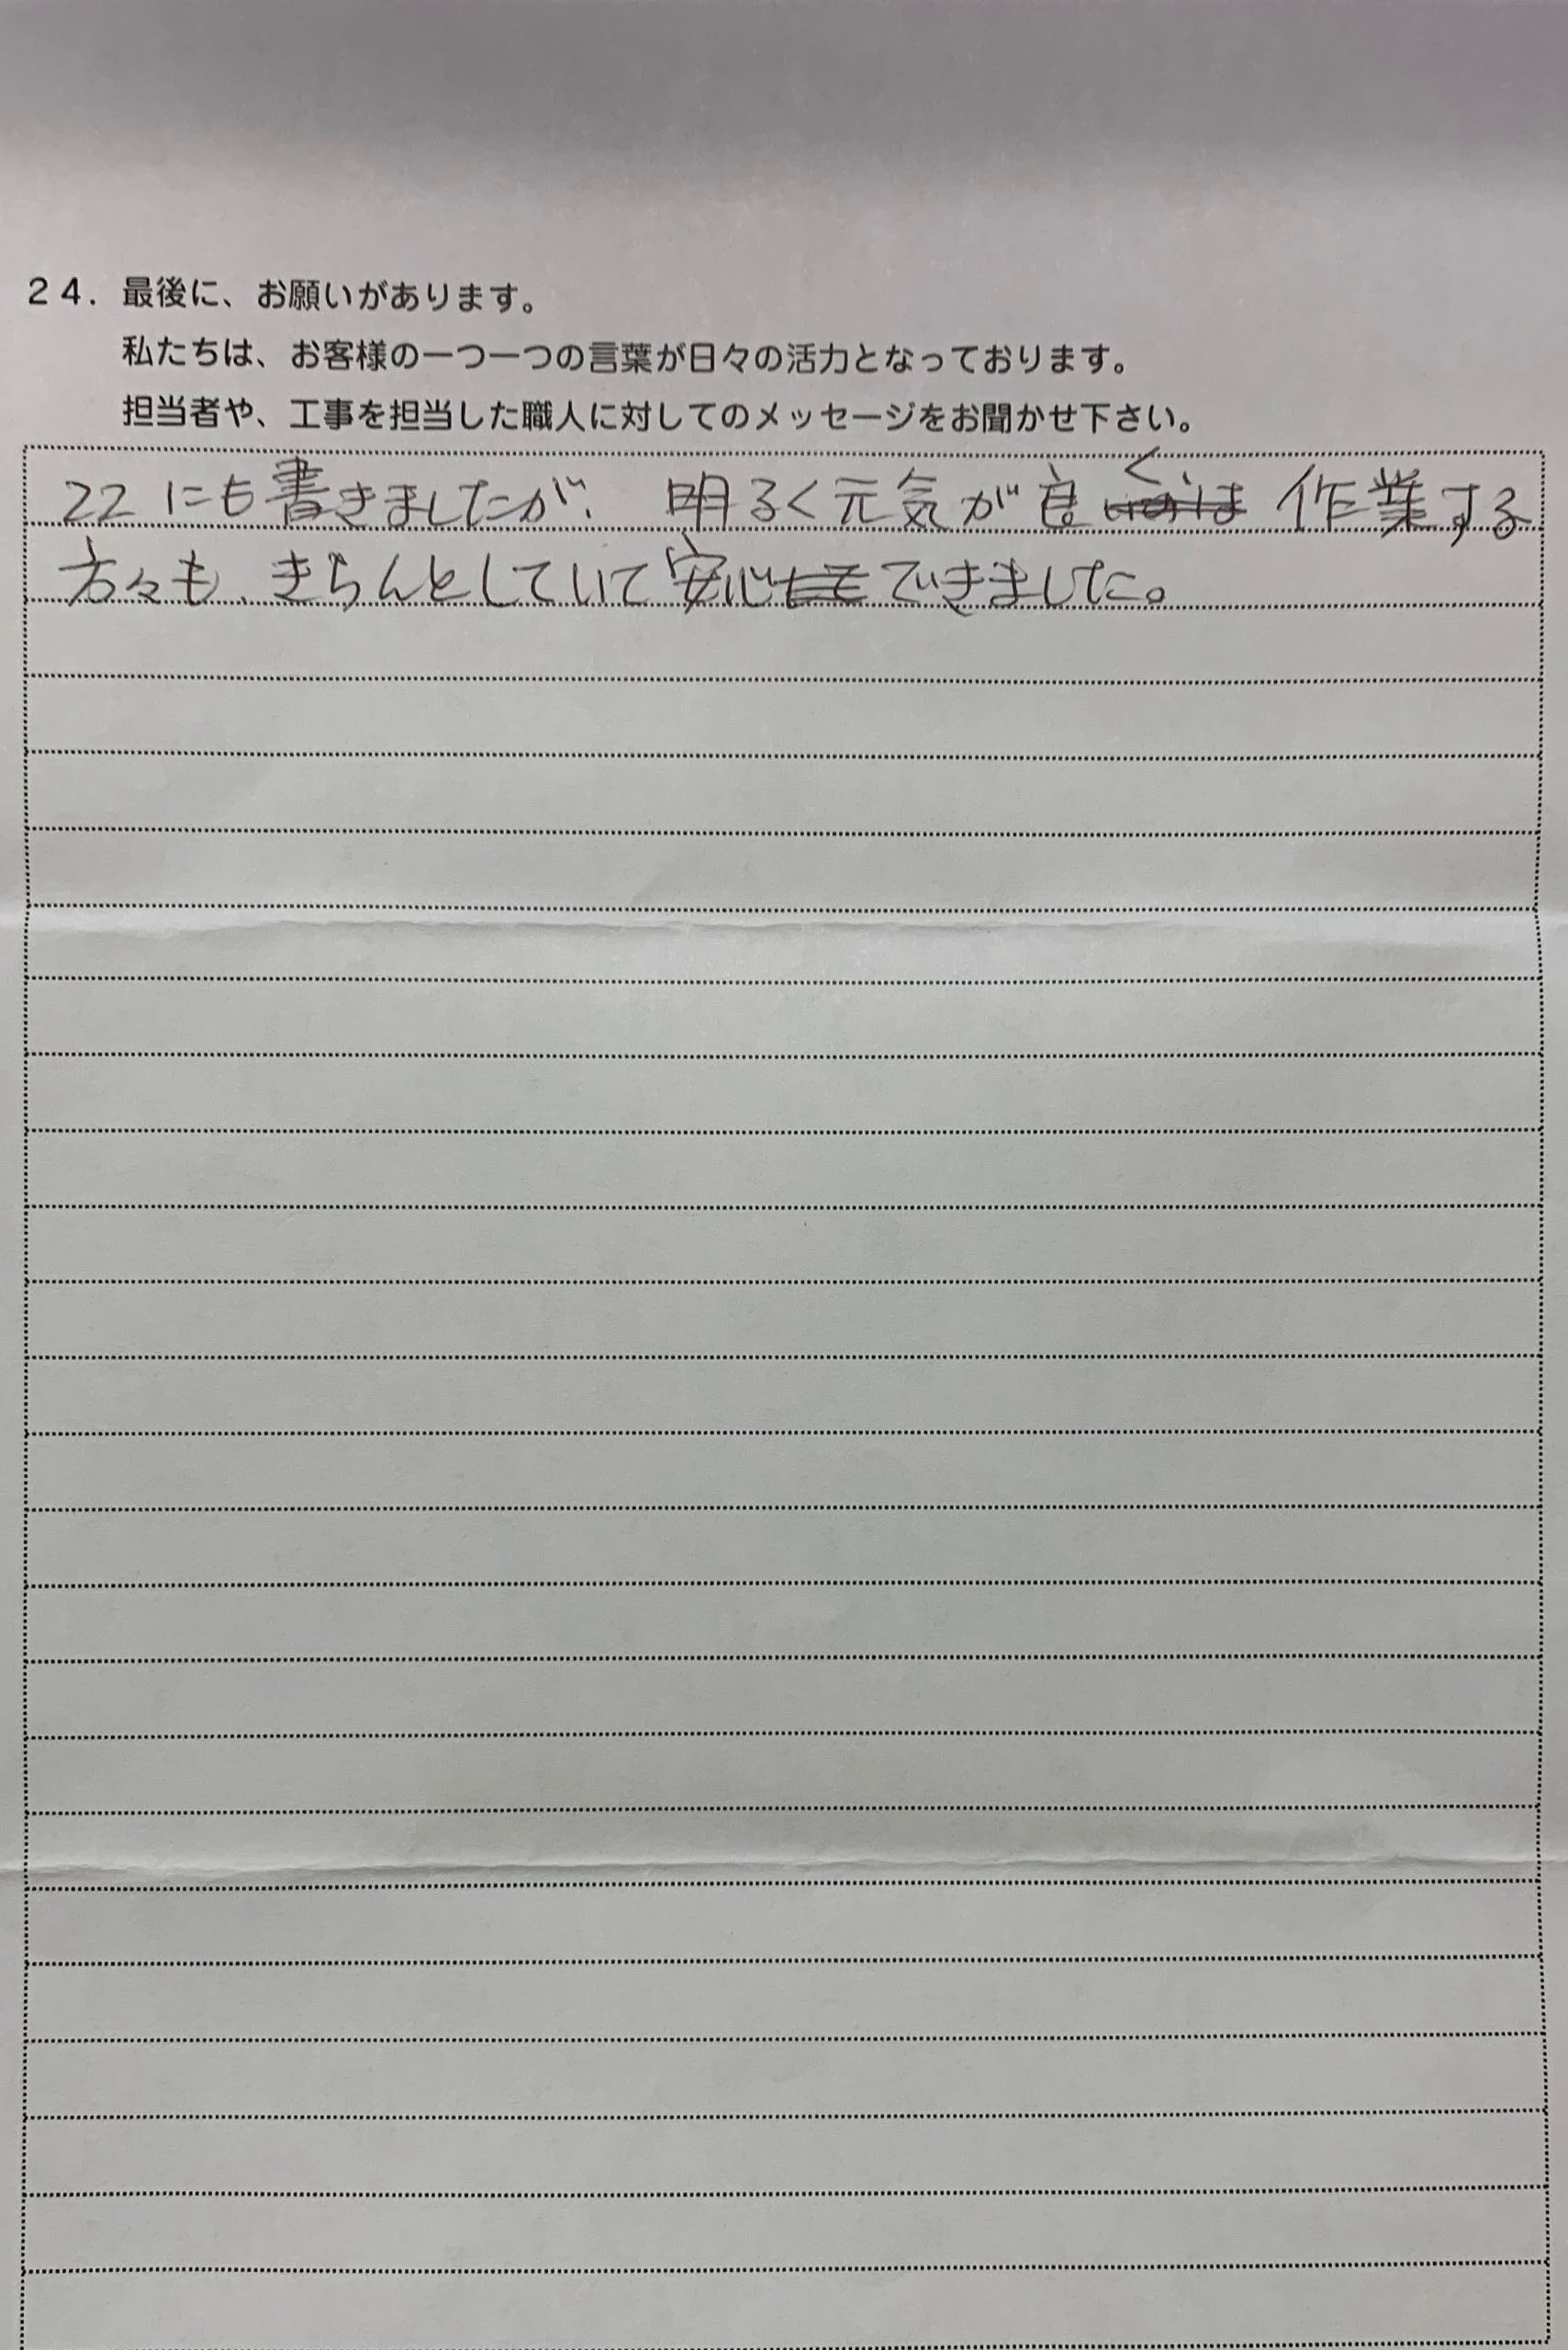 24. 最後に、お願いがあります。
私たちは、お客様の一つ一つの言葉が日々の活力となっております。
担当者や、工事を担当した職人に対してのメッセージをお聞かせ下さい。
22にも書きましたが、明るく元気が良く作業する
方々も、きちんとしていて安心できました。